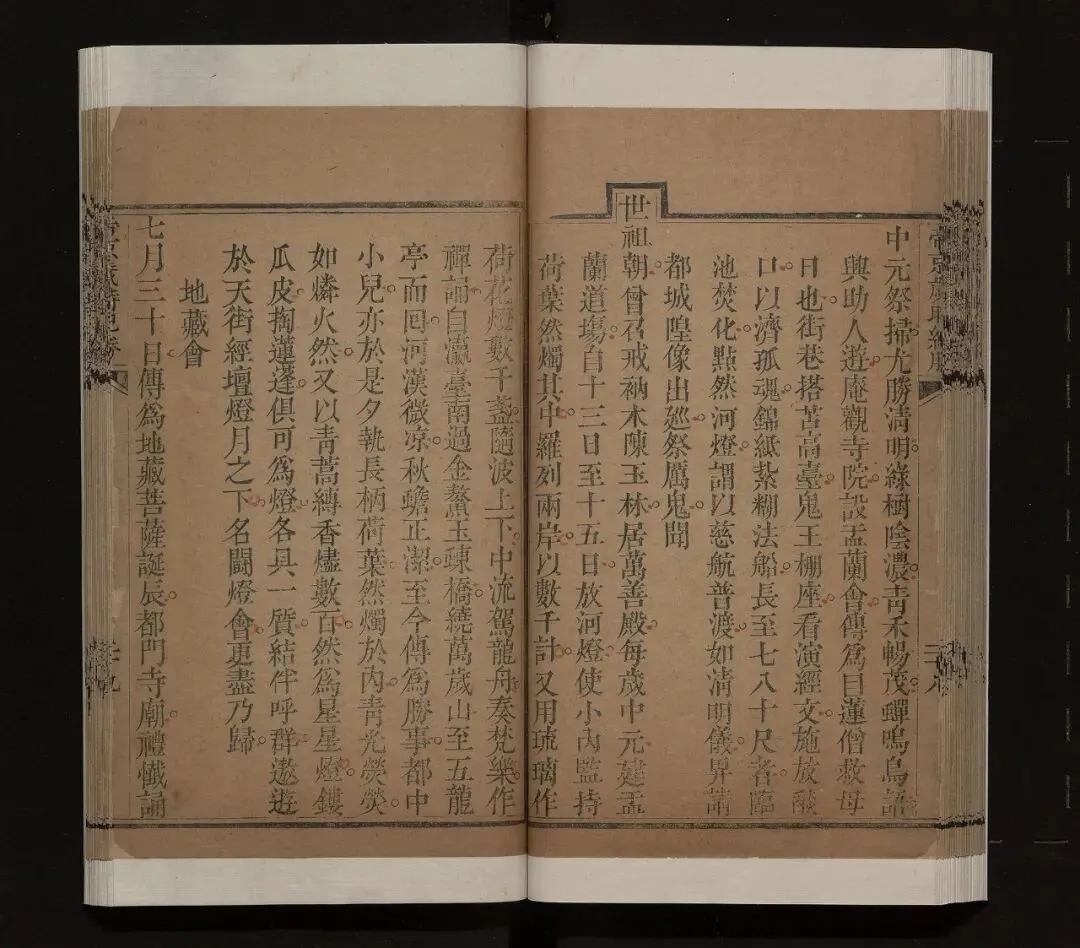 中元祭掃尤勝清明綠樹陰濃青禾暢茂蟬鳴鳥語
興助人遊庵觀寺院設盂蘭會傳爲目蓮僧救母
日也街巷搭苫高臺鬼王棚座看演經文施放燄
口以濟孤魂錦紙紮糊法船長至七八十尺者臨
池焚化點然河燈謂以慈航普渡如清明儀舁請
都城隍像出巡祭厲鬼聞
世祖朝曾召戒衲木陳玉林居萬善殿每歲中元建盂
蘭道塲自十三日至十五日放河燈使小內監持
荷葉然燭其中羅列兩岸以數千計又用琉璃作
荷花燈數千盞隨波上下中流駕龍舟奏梵樂作
禪誦自瀛臺南過金鰲玉蝀橋繞萬歲山至五龍
亭而回河漢微凉秋蟾正潔至今傳爲勝事都中
小兒亦於是夕執長柄荷葉然燭於內青光熒熒
如燐火然又以青蒿縛香燼數百然爲星星燈鏤
瓜皮掏蓮蓬俱可爲燈各具一質結伴呼群遨遊
於天街經壇燈月之下名鬭燈會更盡乃歸
地藏會
七月三十日傳爲地藏菩薩誕辰都門寺廟禮懺誦